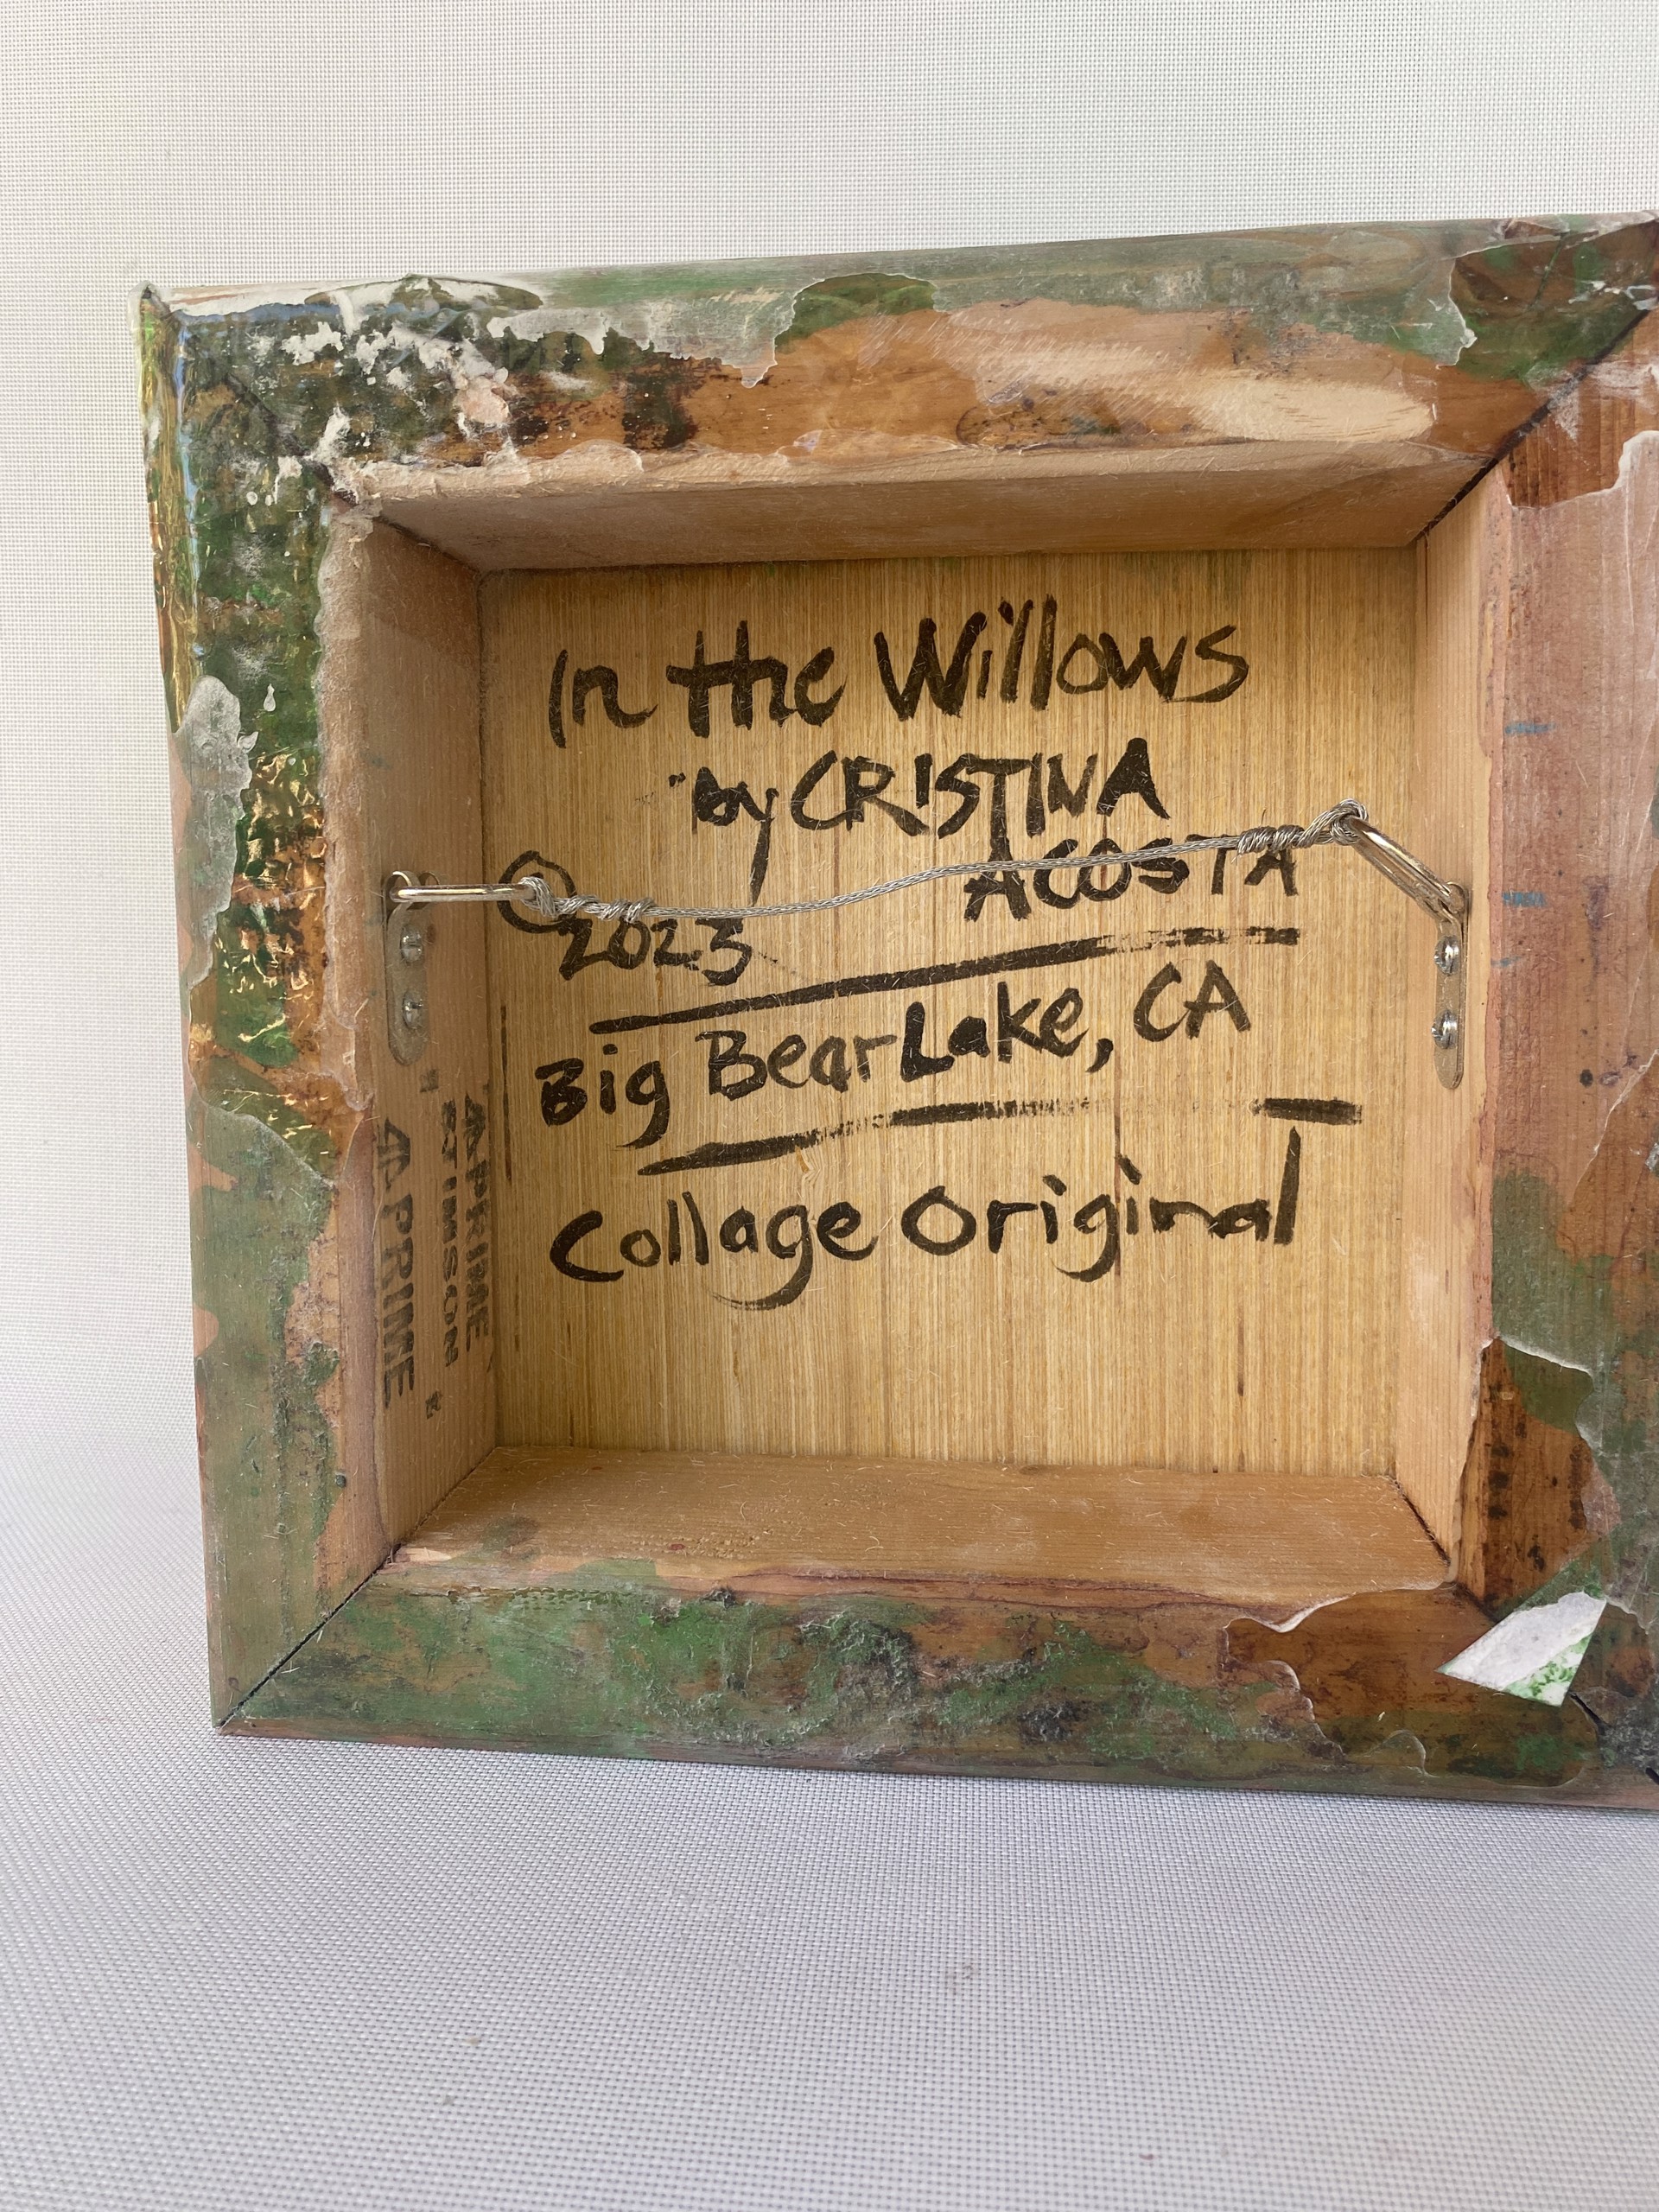 In the Willows
by CRISTINA
ACOSTA
© 2023
Big Bear Lake, CA
Collage Original
APRIME
APRIME